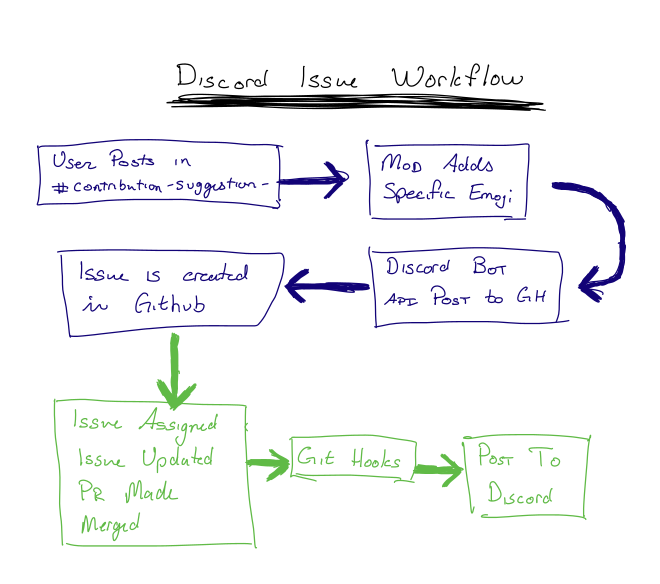 Discord Issue Workflow
User Posts in
#contribution-suggestion-
Mod Adds
Specific Emoji
Discord Bot
API Post to GH
Issue is created
in Github
Issue Assigned
Issue Updated
PR Made
Merged
Git Hooks
Post To
Discord